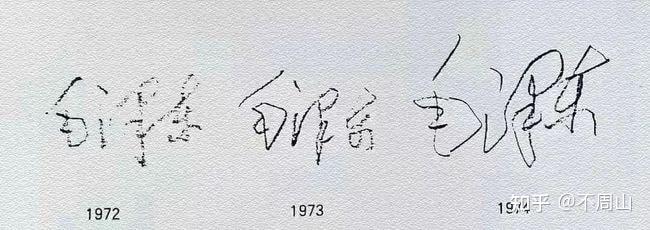 毛泽东 毛泽东 毛泽东
1972 1973 1974
知乎 @不周山